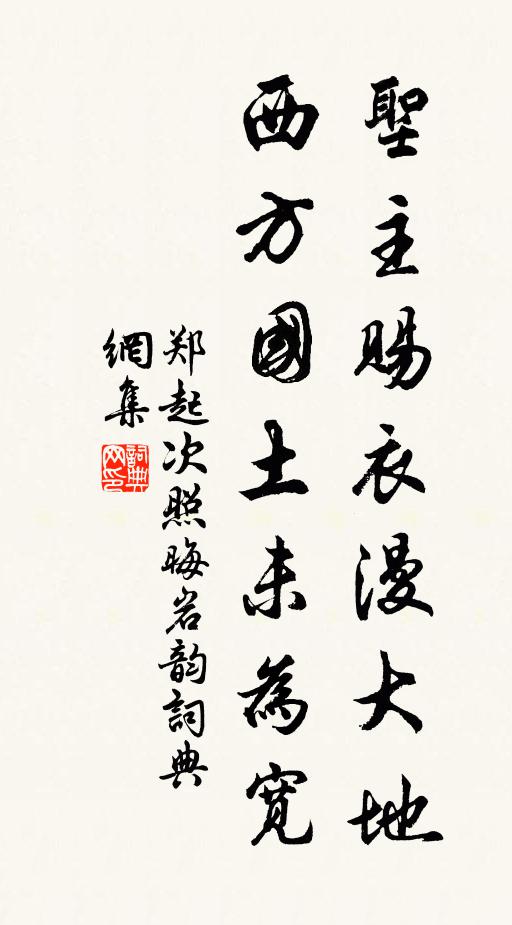 聖主賜衣漫大地
西方國土未為寬
郑起次照晦岩韵詞典
網集
詞典
网印